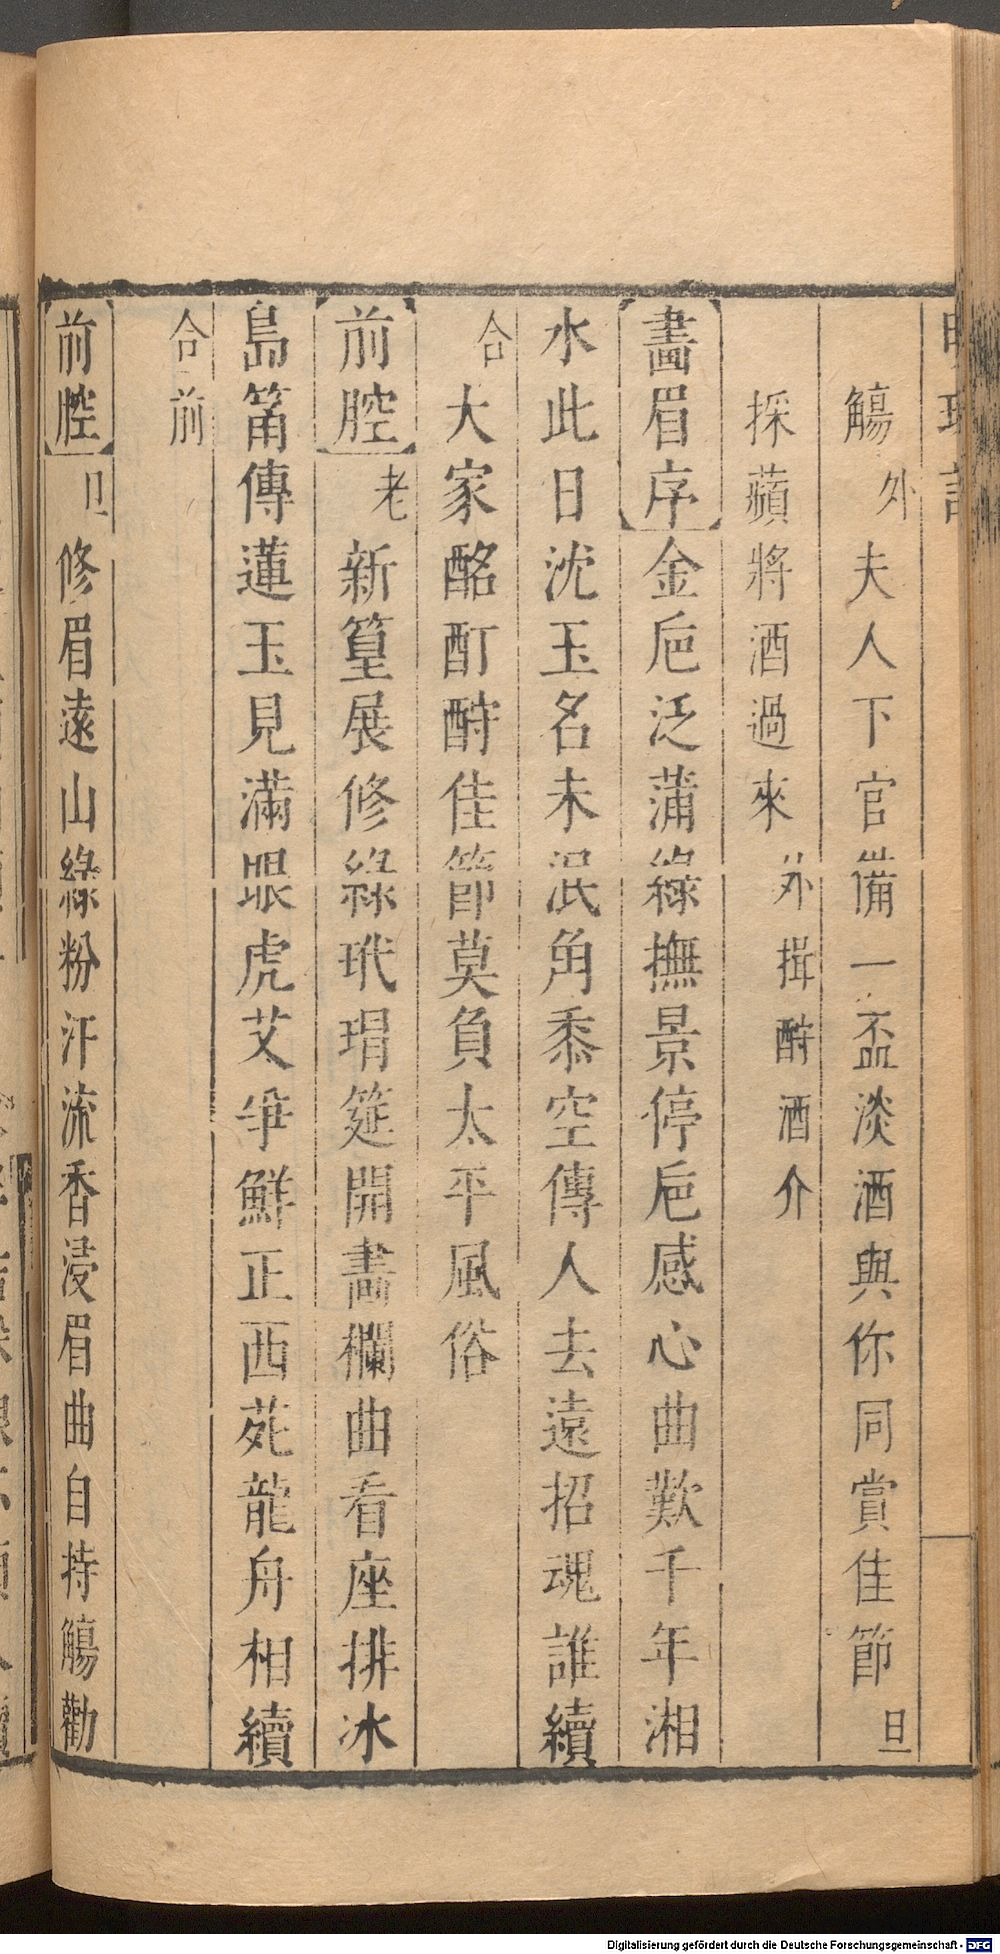 觴外夫人下官備一盃淡酒與你同賞佳節旦
採蘋將酒過來外揖酧酒介
畫眉序金巵泛蒲綠撫景停巵感心曲歎千年湘
水此日沈玉名未泯角黍空傳人去遠招魂誰續
合大家酩酊酧佳節莫負太平風俗
前腔老新篁展修綠玳瑁筵開畵欄曲看座排冰
島筩傳蓮玉見滿眼虎艾爭鮮正西苑龍舟相續
合前
前腔旦修眉遠山綠粉汗流香浸眉曲自持觴勸
Digitalisierung gefördert durch die Deutsche Forschungsgemeinschaft - DFG